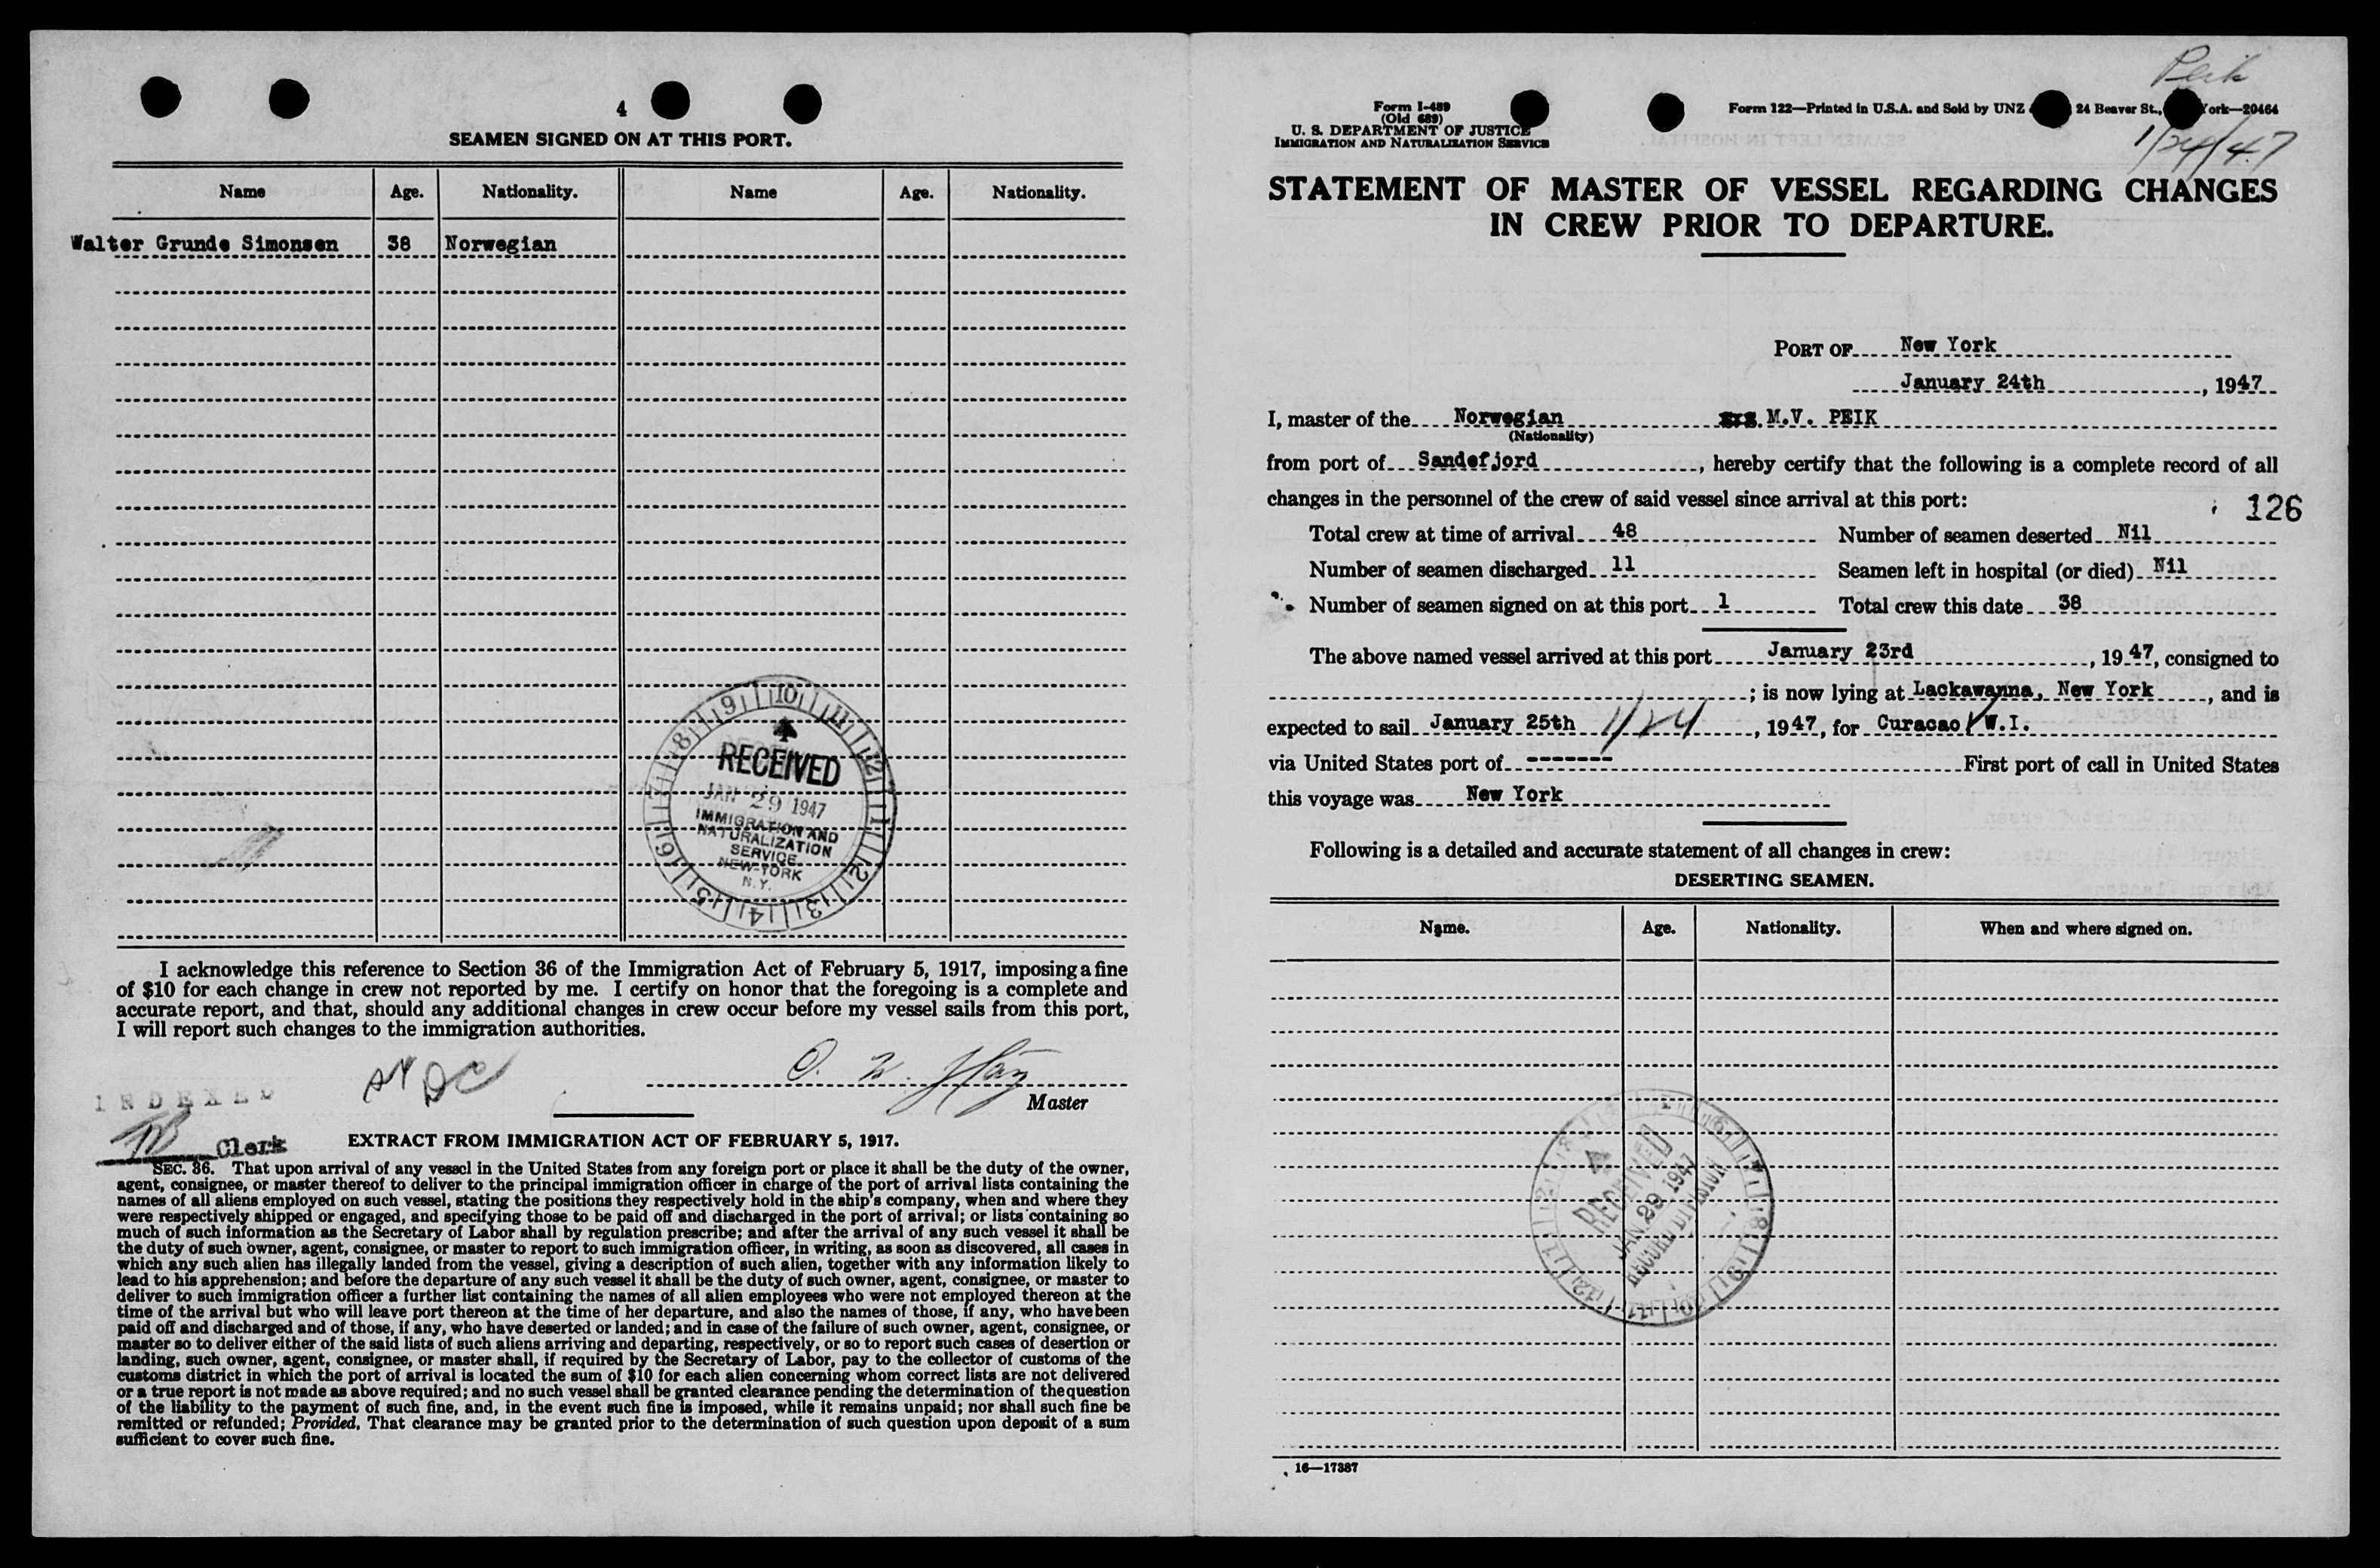 4
SEAMEN SIGNED ON AT THIS PORT.
Name Age. Nationality. Name Age. Nationality.
Walter Grunde Simonsen 38 Norwegian
9 10 11 12 1 2 3 4 5 6 7 8
RECEIVED
JAN 29 1947
IMMIGRATION AND
NATURALIZATION
SERVICE
NEW YORK
N.Y.
I acknowledge this reference to Section 36 of the Immigration Act of February 5, 1917, imposing a fine
of $10 for each change in crew not reported by me. I certify on honor that the foregoing is a complete and
accurate report, and that, should any additional changes in crew occur before my vessel sails from this port,
I will report such changes to the immigration authorities.
Master
INDEXED
Clerk
EXTRACT FROM IMMIGRATION ACT OF FEBRUARY 5, 1917.
SEC. 36. That upon arrival of any vessel in the United States from any foreign port or place it shall be the duty of the owner,
agent, consignee, or master thereof to deliver to the principal immigration officer in charge of the port of arrival lists containing the
names of all aliens employed on such vessel, stating the positions they respectively hold in the ship's company, when and where they
were respectively shipped or engaged, and specifying those to be paid off and discharged in the port of arrival; or lists containing so
much of such information as the Secretary of Labor shall by regulation prescribe; and after the arrival of any such vessel it shall be
the duty of such owner, agent, consignee, or master to report to such immigration officer, in writing, as soon as discovered, all cases in
which any such alien has illegally landed from the vessel, giving a description of such alien, together with any information likely to
lead to his apprehension; and before the departure of any such vessel it shall be the duty of such owner, agent, consignee, or master to
deliver to such immigration officer a further list containing the names of all alien employees who were not employed thereon at the
time of the arrival but who will leave port thereon at the time of her departure, and also the names of those, if any, who have been
paid off and discharged and of those, if any, who have deserted or landed; and in case of the failure of such owner, agent, consignee, or
master so to deliver either of the said lists of such aliens arriving and departing, respectively, or so to report such cases of desertion or
landing, such owner, agent, consignee, or master shall, if required by the Secretary of Labor, pay to the collector of customs of the
customs district in which the port of arrival is located the sum of $10 for each alien concerning whom correct lists are not delivered
or a true report is not made as above required; and no such vessel shall be granted clearance pending the determination of the question
of the liability to the payment of such fine, and, in the event such fine is imposed, while it remains unpaid; nor shall such fine be
remitted or refunded; Provided, That clearance may be granted prior to the determination of such question upon deposit of a sum
sufficient to cover such fine.
Peik
1/24/47
Form I-489
(Old 689)
U. S. DEPARTMENT OF JUSTICE
IMMIGRATION AND NATURALIZATION SERVICE
Form 122—Printed in U.S.A. and Sold by UNZ 24 Beaver St., York—20464
STATEMENT OF MASTER OF VESSEL REGARDING CHANGES
IN CREW PRIOR TO DEPARTURE.
PORT OF New York
January 24th, 1947
I, master of the Norwegian M.V. PEIK
(Nationality)
from port of Sandefjord, hereby certify that the following is a complete record of all
changes in the personnel of the crew of said vessel since arrival at this port:
126
Total crew at time of arrival 48 Number of seamen deserted Nil
Number of seamen discharged 11 Seamen left in hospital (or died) Nil
Number of seamen signed on at this port 1 Total crew this date 38
The above named vessel arrived at this port January 23rd, 1947, consigned to
; is now lying at Lackawanna, New York, and is
expected to sail January 25th 1/24, 1947, for Curacao W.I.
via United States port of ------- First port of call in United States
this voyage was New York
Following is a detailed and accurate statement of all changes in crew:
DESERTING SEAMEN.
Name. Age. Nationality. When and where signed on.
RECEIVED
JAN 29 1947
RECORD DIVISION
16—17387